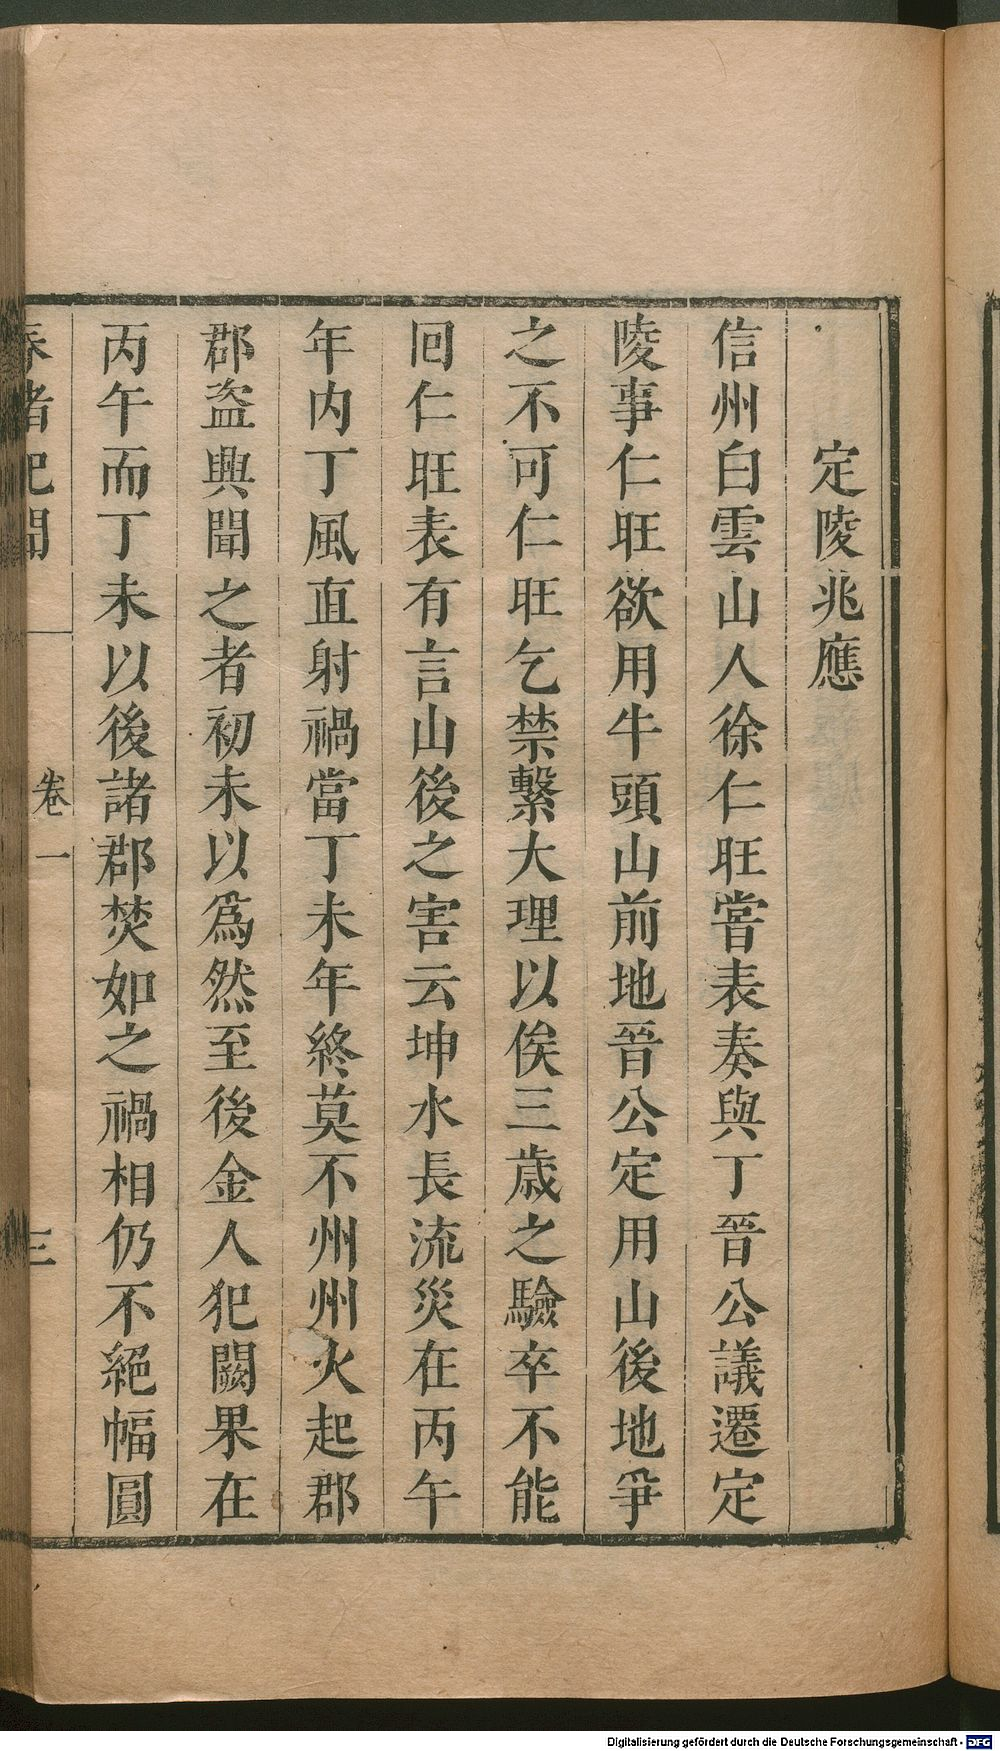 定陵兆應
信州白雲山人徐仁旺嘗表奏與丁晉公議遷定
陵事仁旺欲用牛頭山前地晉公定用山後地爭
之不可仁旺乞禁繫大理以俟三歲之驗卒不能
回仁旺表有言山後之害云坤水長流災在丙午
年内丁風直射禍當丁未年終莫不州州火起郡
郡盗興聞之者初未以爲然至後金人犯闕果在
丙午而丁未以後諸郡焚如之禍相仍不絕幅圓
春渚紀聞 卷一 三
Digitalisierung gefördert durch die Deutsche Forschungsgemeinschaft - DFG